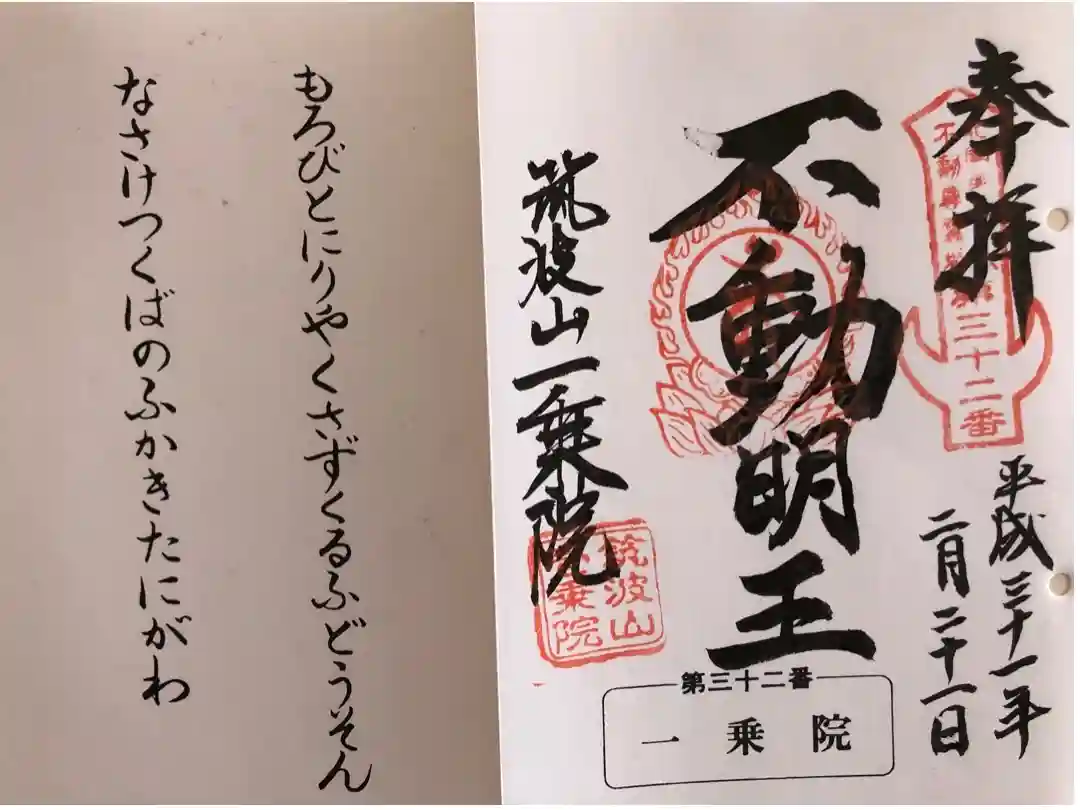 奉拝
三十二番
平成三十一年
二月二十一日
不動明王
筑波山一乗院
筑波山
乗院
第三十二番
一乗院
もろびとにりやくさずくるふどうそん
なさけつくばのふかきたにがわ